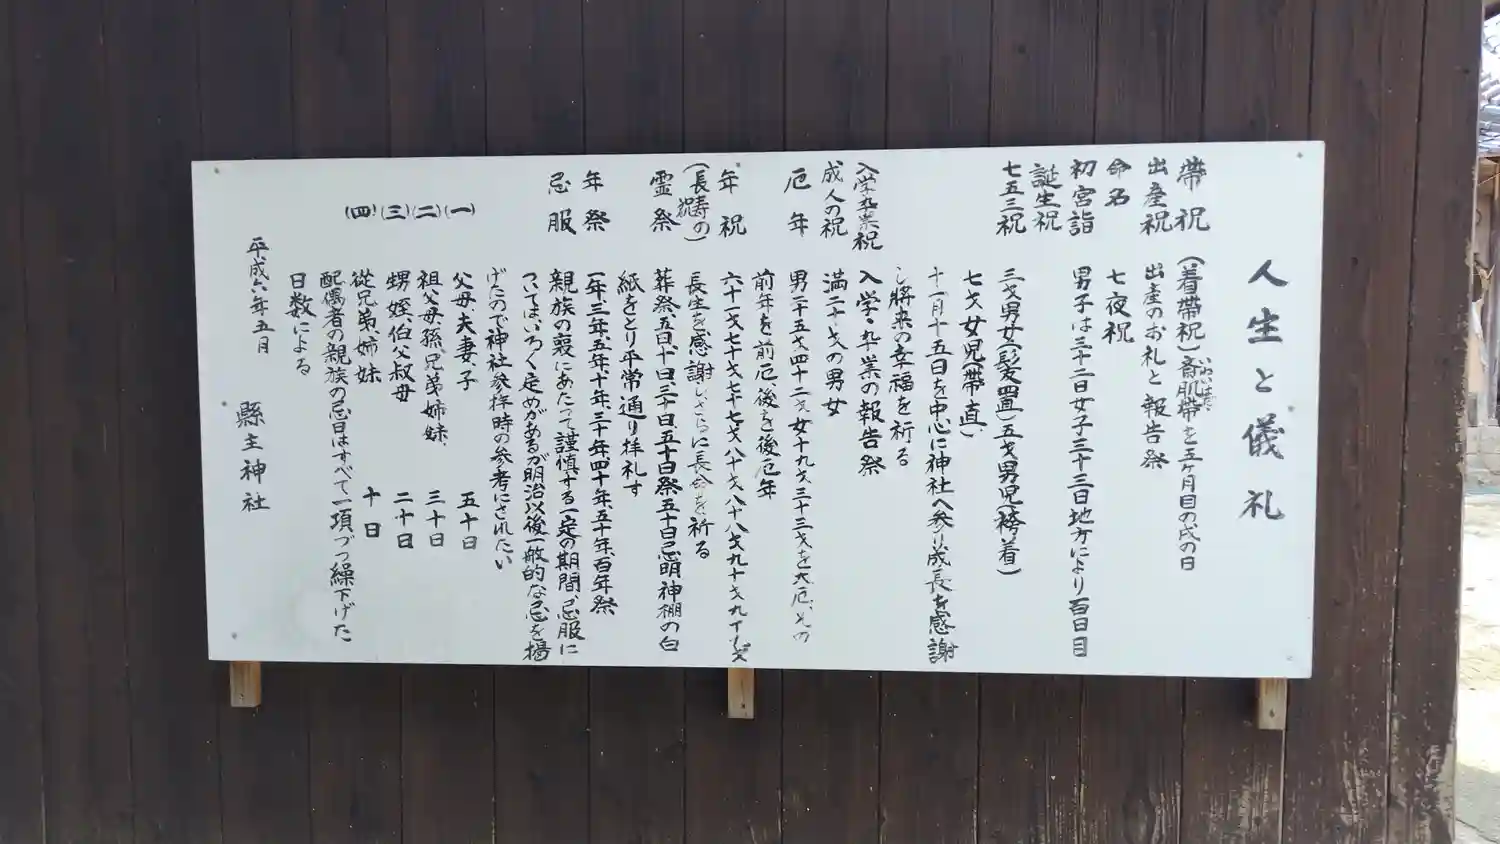 人生と儀礼
帯祝 (着帯祝)斎肌帯を五ヶ月目の戌の日
出産祝 出産のお礼と報告祭
命名 七夜祝
初宮詣 男子は三十二日女子三十三日地方により百日目
誕生祝
七五三祝 三才男女(髪置)五才男児(袴着)
七才女児(帯直)
十一月十五日を中心に神社へ参り成長を感謝
し将来の幸福を祈る
入学卆業祝 入学・卆業の報告祭
成人の祝 満二十才の男女
厄年 男二十五才四十二才女十九才三十三才を大厄、その
前年を前厄、後を後厄年
年祝 六十一才七十才七十七才八十才八十八才九十才九十九才
(長寿の祝) 長生を感謝しさらに長命を祈る
霊祭 葬祭、五日、十日、三十日、五十日祭五十日忌明神棚の白
紙をとり平常通り拝礼す
年祭 一年、三年、五年、十年、三十年四十年、五十年、百年祭
忌服 親族の喪にあたって謹慎する一定の期間、忌服に
ついてはいろく定めがあるが明治以後一般的な忌を掲
げたので神社参拝時の参考にされたい
(一) 父母夫妻子 五十日
(二) 祖父母孫兄弟姉妹、 三十日
(三) 甥姪、伯父叔母 二十日
(四) 従兄弟、姉妹 十日
配偶者の親族の忌日はすべて一項づつ繰下げた
日数による
平成六年五月 縣主神社